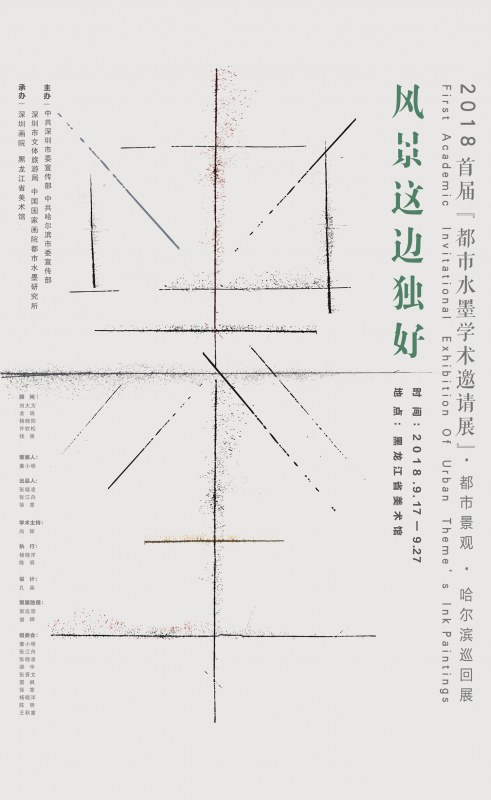 2018首届『都市水墨学术邀请展』·都市景观 · 哈尔滨巡回展
First Academic Invitational Exhibition Of Urban Theme's Ink Paintings
风景这边独好
时间：2018.9.17—9.27
地点：黑龙江省美术馆
主办｜中共深圳市委宣传部 中共哈尔滨市委宣传部
深圳市文体旅游局 中国国家画院都市水墨研究所
承办｜深圳画院 黑龙江省美术馆
顾 问：
策展人：
董小明
出品人：
张晓凌
张江舟
学术主持：
尚 辉
执 行：
杨晓洋
陈 明
设 计：
策展助理：
组委会：
董小明
张江舟
张晓凌
杨晓洋
陈 明